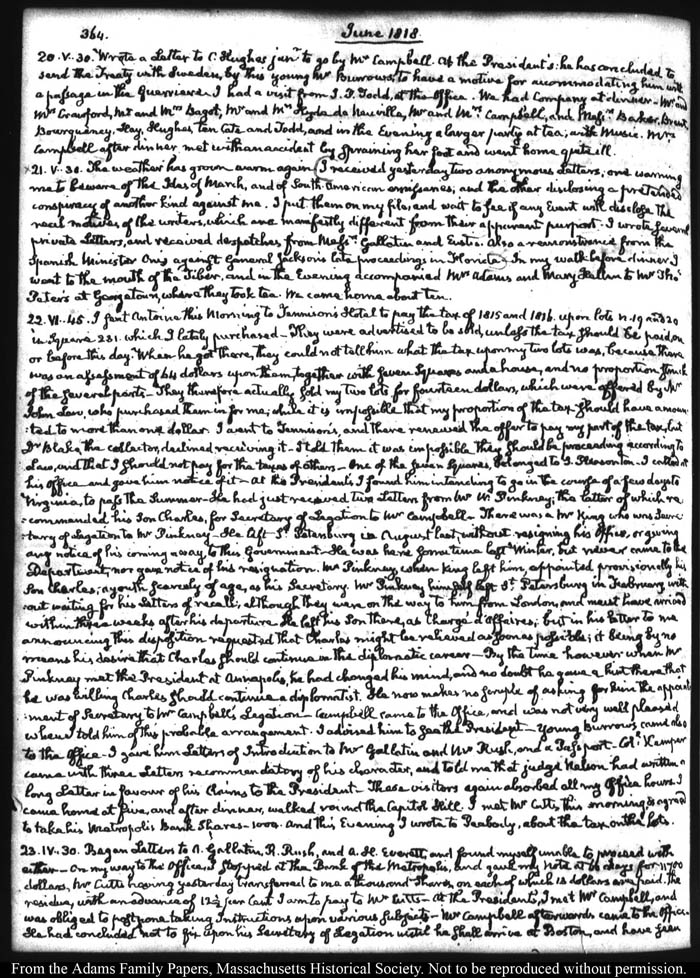 364.
June 1818
20. V. 30. Wrote a Letter to C. Hughes junr. to go by Mr Campbell. At the President's: he has concluded to
send the Treaty with Sweden, by this young Mr Burrows, to have a motive for accommodating him with
a passage in the Guerriere. I had a visit from I. P. Todd, at the Office. We had Company at dinner— Mr and
Mrs Crawford, Mr and Mrs Bagot, Mr and Mrs Hyde de Neuville, Mr and Mrs Campbell, and Messrs Baker, Brent
Bourqueney, Hay, Hughes, ten Cate and Todd, and in the Evening a larger party at tea; with Music. Mrs
Campbell after dinner met with an accident by spraining her foot and went home quite ill.
21. V. 30. The weather has grown warm again. I received yesterday two anonymous Letters; one warning
me to beware of the Ides of March, and of South-American emissaries; and the other disclosing a pretended
conspiracy of another kind against me. I put them on my file, and wait to see if any Event will disclose the
real motives of the writers, which are manifestly different from their apparent purport. I wrote several
private Letters, and received despatches, from Messrs Gallatin and Eustis. also a remonstrance from the
Spanish Minister Onis against General Jackson's late proceedings in Florida. In my walk before dinner I
went to the mouth of the Tiber, and in the Evening accompanied Mrs Adams and Mary Hellen to Mr Tho's
Peter's at Georgetown, where they took tea. We came home about ten.
22. VI. 45. I sent Antoine this Morning to Tennison's Hotel to pay the tax of 1815 and 1816. upon lots n. 19 and 20
in Square 231. which I lately purchased— They were advertised to be sold, unless the tax should be paid on
or before this day. When he got there, they could not tell him what the tax upon my two lots was, because there
was an assessment of 64 dollars upon them, together with seven Squares and a house, and no proportion struck
of the several parts— They therefore actually sold my two lots for fourteen dollars, which were offered by Mr
John Law, who purchased them in for me; while it is impossible that my proportion of the tax should have amoun
:ted to more than one dollar. I went to Tennison's, and there renewed the offer to pay my part of the tax, but
Dr Blake, the collector, declined receiving it— I told them it was impossible they should be proceeding according to
Law, and that I should not pay for the taxes of others— One of the seven Squares, belonged to S. Pleasonton— I called at
his office and gave him notice of it— At the President's I found him intending to go in the course of a few days to
Virginia, to pass the Summer— He had just received two Letters from Mr W. Pinkney; the latter of which re
:commended his Son Charles, for Secretary of Legation to Mr Campbell— There was a Mr King who was Secre
:tary of Legation to Mr Pinkney— He left St. Petersburg in August last, without resigning his Office, or giving
any notice of his coming away, to this Government— He was here some time last Winter, but never came to the
Department, nor gave notice of his resignation. Mr Pinkney, when King left him, appointed provisionally his
Son Charles, a youth scarcely of age, as his Secretary. Mr Pinkney himself left St. Petersburg in February, with
out waiting for his Letters of recall; although they were on the way to him from London, and must have arrived
within three weeks after his departure. He left his Son there, as Chargé d'Affaires; but in his Letter to me
announcing this disposition requested that Charles might be relieved as soon as possible; it being by no
means his desire that Charles should continue in the diplomatic career— By the time however when Mr
Pinkney met the President at Annapolis, he had changed his mind, and no doubt he gave a hint there that
he was willing Charles should continue a diplomatist. He now makes no scruple of asking for him the appoint
:ment of Secretary to Mr Campbell's Legation— Campbell came to the Office, and was not very well pleased
when I told him of this probable arrangement. I advised him to see the President— Young Burrows came also
to the Office— I gave him Letters of Introduction to Mr Gallatin and Mr Rush, and a Passport— Coll. Kemper
came with three Letters recommendatory of his character, and told me that judge Nelson had written a
long Letter in favour of his Claims to the President— These visitors again absorbed all my Office hours. I
came home at five, and after dinner, walked round the Capitol Hill. I met Mr Cutts, this morning, & agreed
to take his Metropolis Bank Shares— 1000. And this Evening I wrote to Peabody, about the tax on the lots.
23. IV. 30. Began Letters to A. Gallatin, R. Rush, and A. H. Everett, and found myself unable to proceed with
either— On my way to the Office, I stopped at the Bank of the Metropolis, and gave my Note at 60 days for 11700
dollars, Mr Cutts having yesterday transferred to me a thousand shares, on each of which 12 dollars are paid. The
residue, with an advance of 12½ per Cent I own to pay to Mr Cutts— At the President's, I met Mr Campbell, and
was obliged to postpone taking Instructions upon various subjects— Mr Campbell afterwards came to the Office
He had concluded not to fix upon his Secretary of Legation until he shall arrive at Boston, and have seen
From the Adams Family Papers, Massachusetts Historical Society. Not to be reproduced without permission